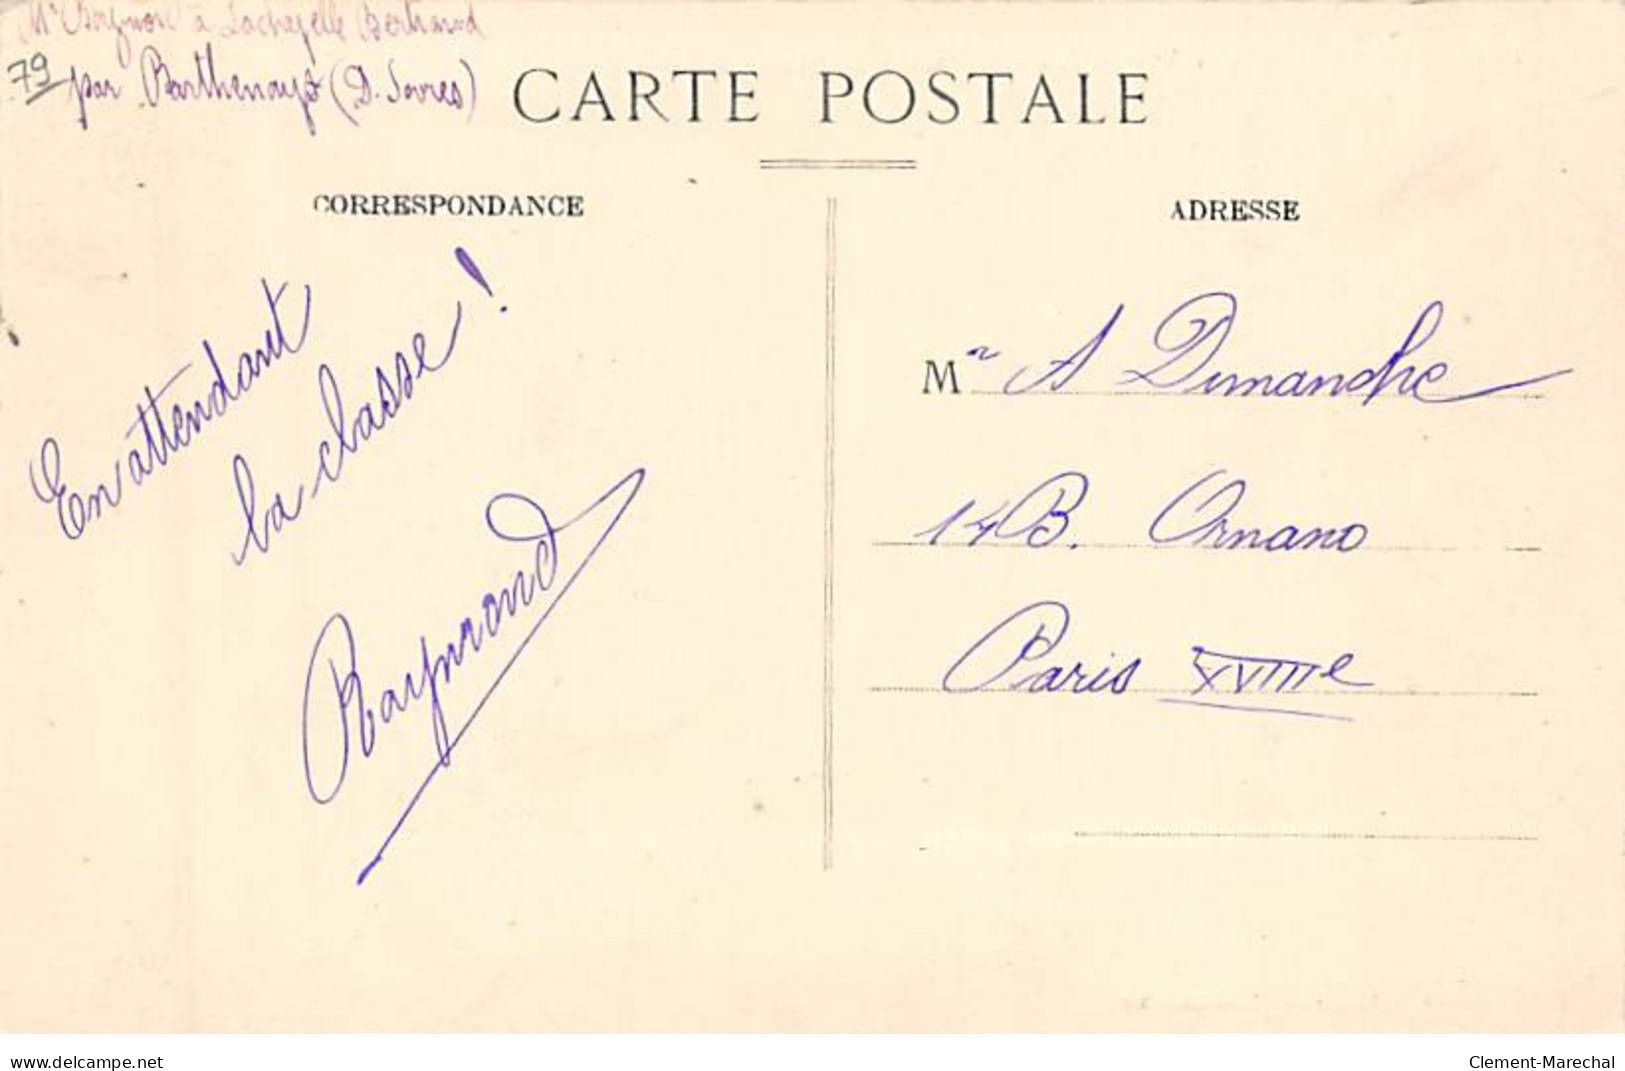 à Lachapelle Bertrand
79
par Parthenay (D. Sèvres)
CARTE POSTALE
CORRESPONDANCE
ADRESSE
En attendant
la classe !
Raymond
Mr A Dimanche
14 B. Ornano
Paris XVIIIe
www.delcampe.net
Clement-Marechal